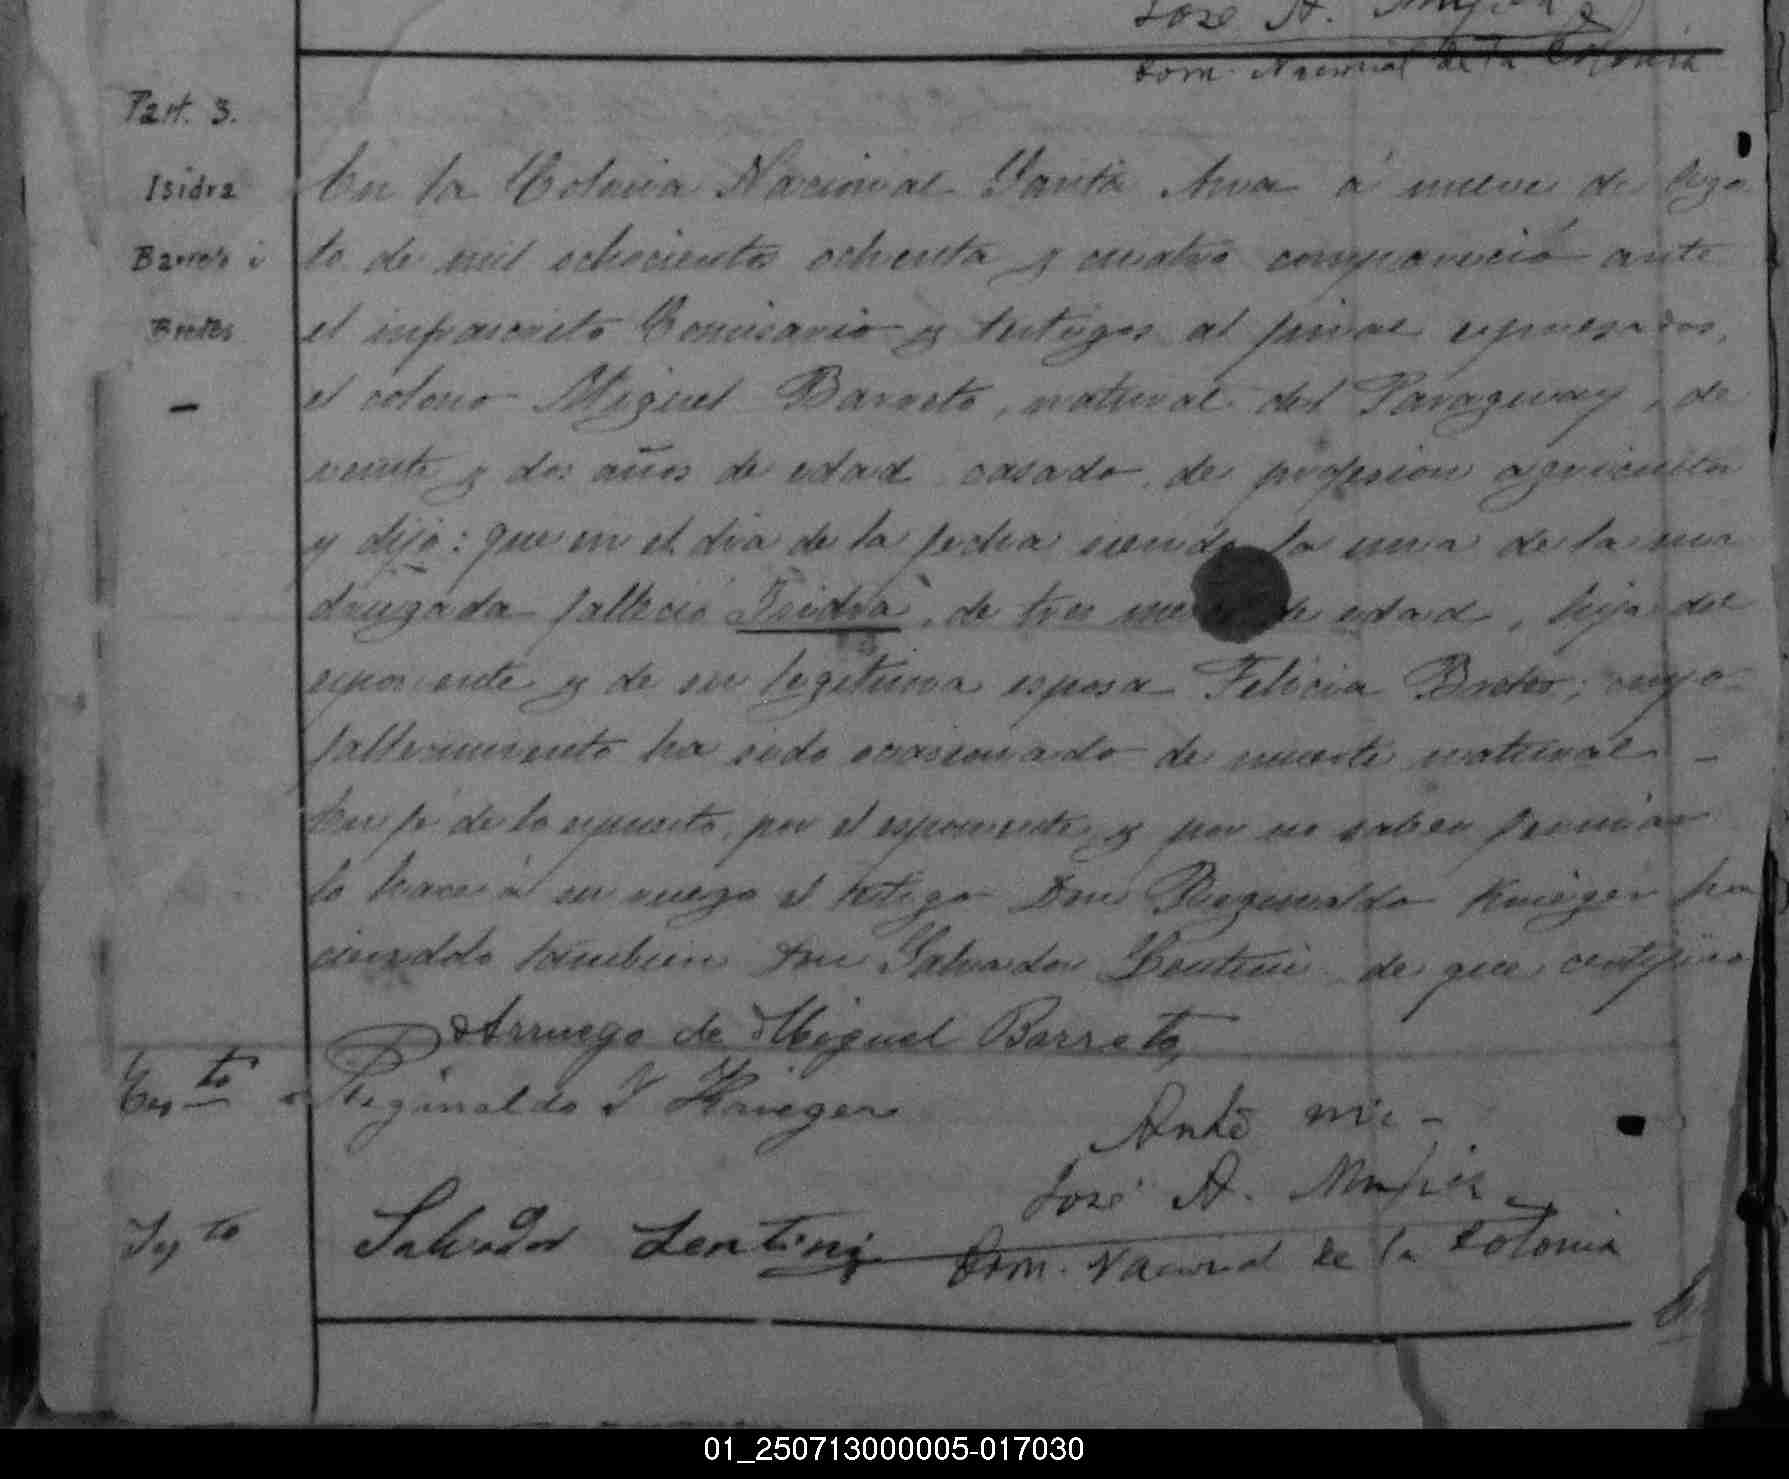 José A.
Com. Nacional de la Colonia
Part. 3.
Isidra
Barreto i
Bretes
En la Colonia Nacional Santa Ana á nueve de Agos
to de mil ochocientos ochenta y cuatro compareció ante
el infrascrito Comisario y testigos al final espresados,
el colono Miguel Barreto, natural del Paraguay, de
veinte y dos años de edad, casado, de profesion agricultor
y dijo: que en el dia de la fecha siendo la una de la ma
drugada falleció Isidra, de tres de edad, hija del
esponente y de su legitima esposa Felicia Bretes; cuyo
fallecimiento ha sido ocasionado de muerte natural -
En fé de lo espuesto, por el esponente y por no saber firmar
lo hace á su ruego el testigo Don Reginaldo Krieger ha
ciendolo tambien Don Salvador Lentini de que certifico
Arruego de Miguel Barreto,
Reginaldo Krieger
Ante mi -
José A.
Tgo to
Salvador Lentini
Com. Nacional de la Colonia
01_250713000005-017030